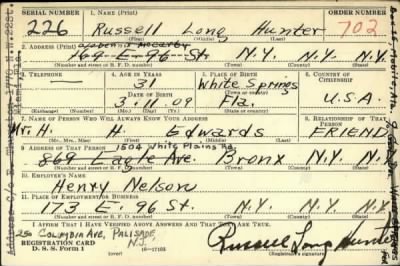 SERIAL NUMBER 1. NAME (Print) ORDER NUMBER
226 Russell Long Hunter 702
(First) (Middle) (Last)
2. ADDRESS (Print)
169 E-96 St. N.Y. N.Y.
(Number and street or R. F. D. number) (Town) (County) (State)
3. TELEPHONE 4. AGE IN YEARS 5. PLACE OF BIRTH 6. COUNTRY OF CITIZENSHIP
— 31 White Springs
DATE OF BIRTH (Town or county)
3. 11. 09 Fla. U.S.A.
(Exchange) (Number) (Mo.) (Day) (Yr.) (State or country)
7. NAME OF PERSON WHO WILL ALWAYS KNOW YOUR ADDRESS 8. RELATIONSHIP OF THAT PERSON
Mr. H. H. Edwards FRIEND
(Mr., Mrs., Miss) (First) (Middle) (Last)
9. ADDRESS OF THAT PERSON 1504 White Plains Rd.
869 Eagle Ave. Bronx N.Y. N.Y.
(Number and street or R. F. D. number) (Town) (County) (State)
10. EMPLOYER'S NAME
Henry Nelson
11. PLACE OF EMPLOYMENT OR BUSINESS
173 E. 96 St. N.Y. N.Y.
(Number and street or R. F. D. number) (Town) (County) (State)
I AFFIRM THAT I HAVE VERIFIED ABOVE ANSWERS AND THAT THEY ARE TRUE.
250 Columbia Ave, PALISADE, N.J.
REGISTRATION CARD
D. S. S. Form 1 (over) Russell Long Hunter
(Registrant's signature)